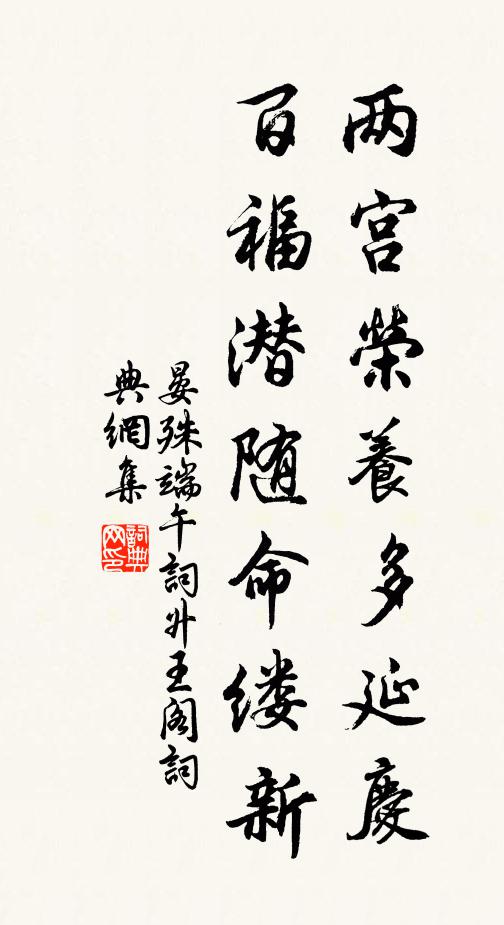 两宫榮養多延慶
百福潜随命缕新
晏殊端午詞廾王阁詞
典網集
詞典网印